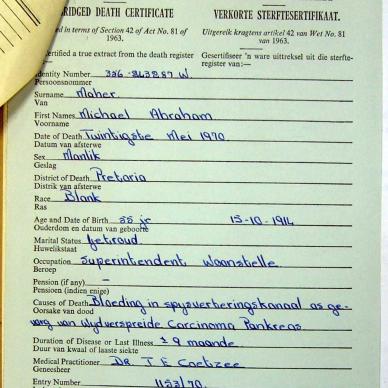 RIDGED DEATH CERTIFICATE
VERKORTE STERFTESERTIFIKAAT.
ed in terms of Section 42 of Act No. 81 of
1963.
Uitgereik kragtens artikel 42 van Wet No. 81
van 1963.
ertified a true extract from the death register
Gesertifiseer 'n ware uittreksel uit die sterfte-
register van:—
Identity Number 336-243287 W.
Persoonsnommer
Surname Maher
Van
First Names Michael Abraham
Voorname
Date of Death Twintigste Mei 1970
Datum van afsterwe
Sex Manlik
Geslag
District of Death Pretoria
Distrik van afsterwe
Race Blank
Ras
Age and Date of Birth 55 jr 15-10-1914
Ouderdom en datum van geboorte
Marital Status Getroud.
Huwelikstaat
Occupation Superintendent Woonstelle
Beroep
Pension (if any)
Pensioen (indien enige)
Causes of Death Bloeding in spysverteringskanaal as ge-
Oorsake van dood
volg van wydverspreide Carcinoma Pankreas.
Duration of Disease or Last Illness ± 9 maande.
Duur van kwaal of laaste siekte
Medical Practitioner DR J E Coetzee
Geneesheer
Entry Number 1153/70.